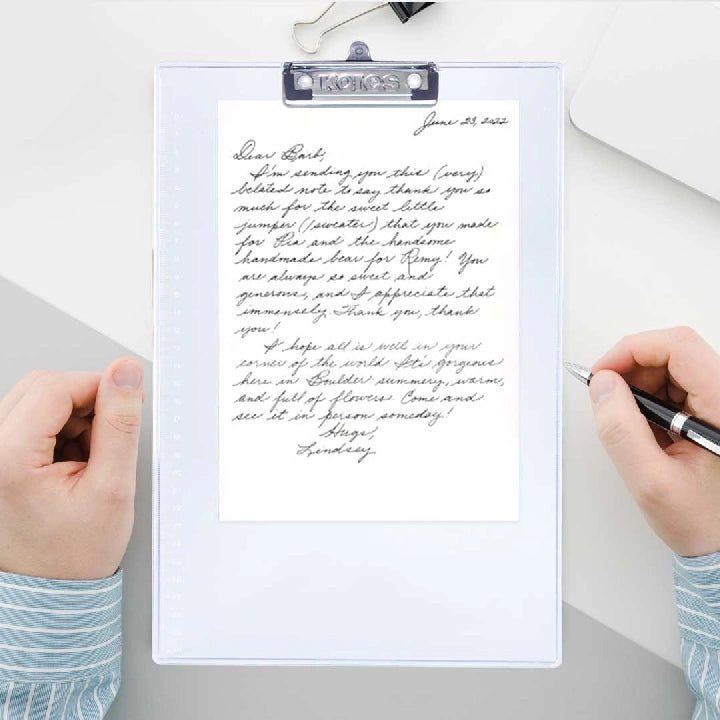 KOKOS
June 23, 2022
Dear Barb,
I'm sending you this (very)
belated note to say thank you so
much for the sweet little
jumper (/sweater) that you made
for Pia and the handsome
handmade bear for Remy! You
are always so sweet and
generous, and I appreciate that
immensely. Thank you, thank
you!
I hope all is well in your
corner of the world. It's gorgeous
here in Boulder: summery, warm,
and full of flowers. Come and
see it in person someday!
Hugs,
Lindsey